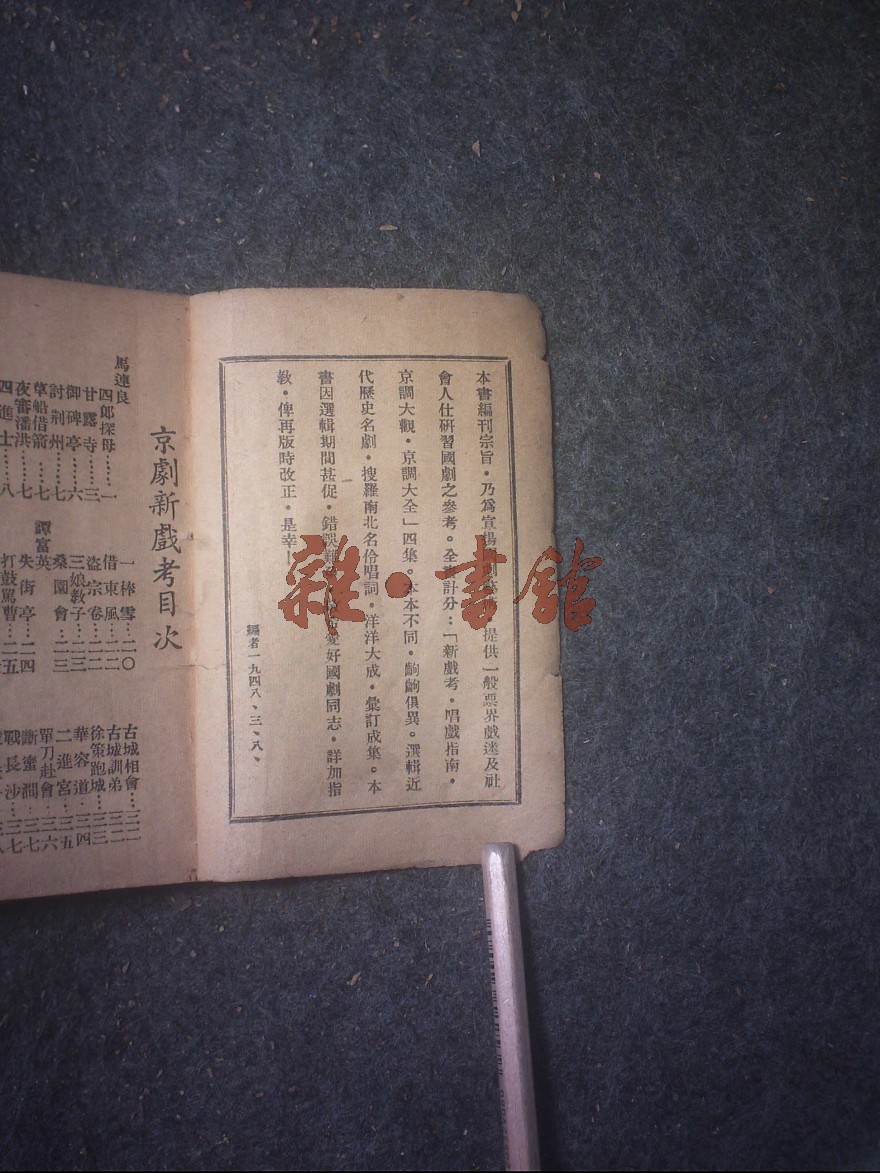 本書編刊宗旨・乃為宣揚提供一般票界戲迷及社
會人仕研習國劇之參考。全書計分：「新戲考・唱戲指南・
京調大觀・京調大全」四集。本本不同・齣齣俱異。選輯近
代歷史名劇・搜羅南北名伶唱詞・洋洋大成・彙訂成集。本
書因選輯期間甚促・錯誤愛好國劇同志・詳加指
教・俾再版時改正・是幸！
編者一九四八、三、八、
京劇新戲考目次
馬連良
四郎探母……一
甘露寺……三
御碑亭……六
討荆州……七
草船借箭……七
夜審潘洪……七
四進士……八
一棒雪…二〇
借東風…二二
盜宗卷…二二
三娘教子…二三
桑園會…二三
譚富英
失街亭…二四
打鼓罵曹…二五
古城相會…三二
古城訓弟…三二
徐策跑城…三三
華容道…三四
二進宮…三五
單刀赴會…三六
斷蜜澗…三七
戰長沙…三七
雜・書館